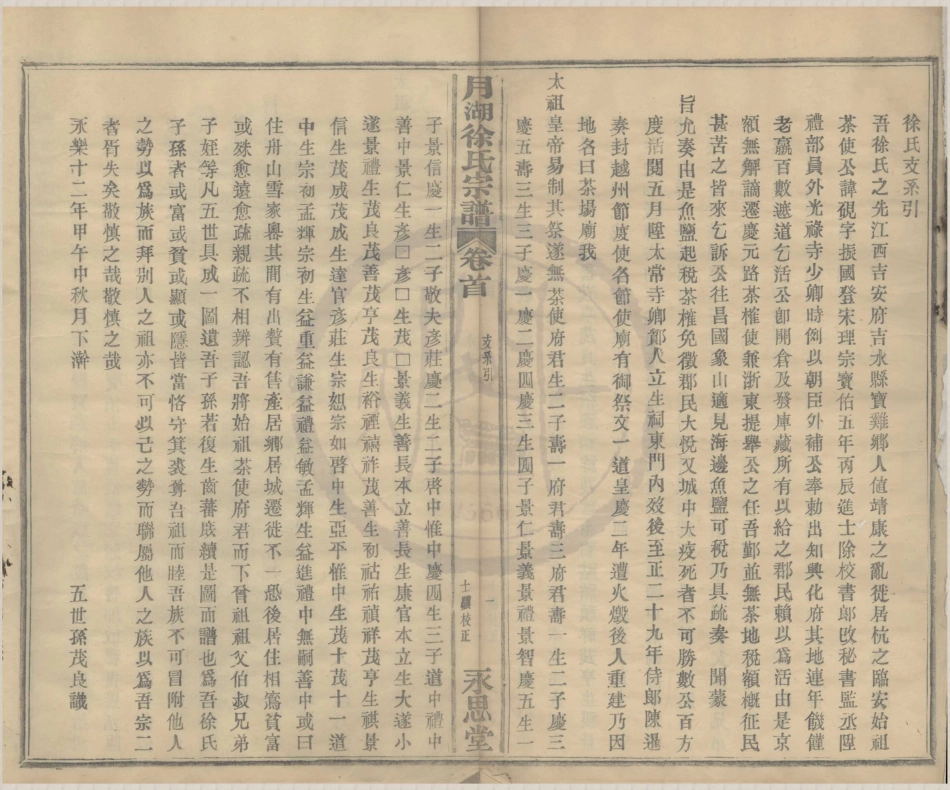 徐氏支系引
吾徐氏之先江西吉安府吉水縣寶雞鄉人値靖康之亂徙居杭之臨安始祖
茶使公諱硯字振國登宋理宗寶佑五年丙辰進士除校書郎改秘書監丞陞
禮部員外光祿寺少卿時例以朝臣外補公奉勅出知興化府其地連年饑饉
老羸百數遮道乞活公卽開倉及發庫藏所有以給之郡民賴以爲活由是京
額無解謫遷慶元路茶榷使兼浙東提舉公之任吾鄞並無茶地稅額概征民
甚苦之皆來乞訴公往昌國象山適見海邊魚鹽可稅乃具疏奏 聞蒙
旨允奏由是魚鹽起稅茶榷免徵郡民大悅又城中大疫死者不可勝數公百方
度活閱五月陞太常寺卿鄞人立生祠東門內歿後至正二十九年侍郞陳暹
奏封越州節度使名節使廟有御祭文一道皇慶二年遭火燬後人重建乃因
地名曰茶場廟我
太祖皇帝易制其祭遂無茶使府君生二子壽一府君壽三府君壽一生二子慶三
慶五壽三生三子慶一慶二慶四慶三生四子景仁景義景禮景智慶五生一
月湖徐氏宗譜 卷首 支系引 一 士 校正 永思堂
子景信慶一生二子敬夫彥莊慶二生二子啓中惟中慶四生三子道中禮中
善中景仁生彥囗彥囗生茂囗景義生善長本立善長生康官本立生大遂小
遂景禮生茂良茂善茂亨茂良生裕禋禎祚茂善生初祜祐禎祥茂亨生祺景
信生茂成茂成生達官彥莊生宗恕宗如啓中生亞平惟中生茂十茂十一道
中生宗初孟輝宗初生益重益謙益禮益敏孟輝生益進禮中無嗣善中或曰
住舟山雪家嶴其閒有出贅有售產居鄉居城遷徙不一恐後居住相窵貧富
或殊愈遠愈疏親疏不相辨認吾將始祖茶使府君而下曾祖祖父伯叔兄弟
子姪等凡五世具成一圖遺吾子孫若復生齒蕃庶續是圖而譜也爲吾徐氏
子孫者或富或貧或顯或隱皆當恪守箕裘尊吾祖而睦吾族不可冒附他人
之勢以爲族而拜別人之祖亦不可以己之勢而聯屬他人之族以爲吾宗二
者胥失矣敬愼之哉敬愼之哉
永樂十二年甲午中秋月下澣
五世孫茂良識